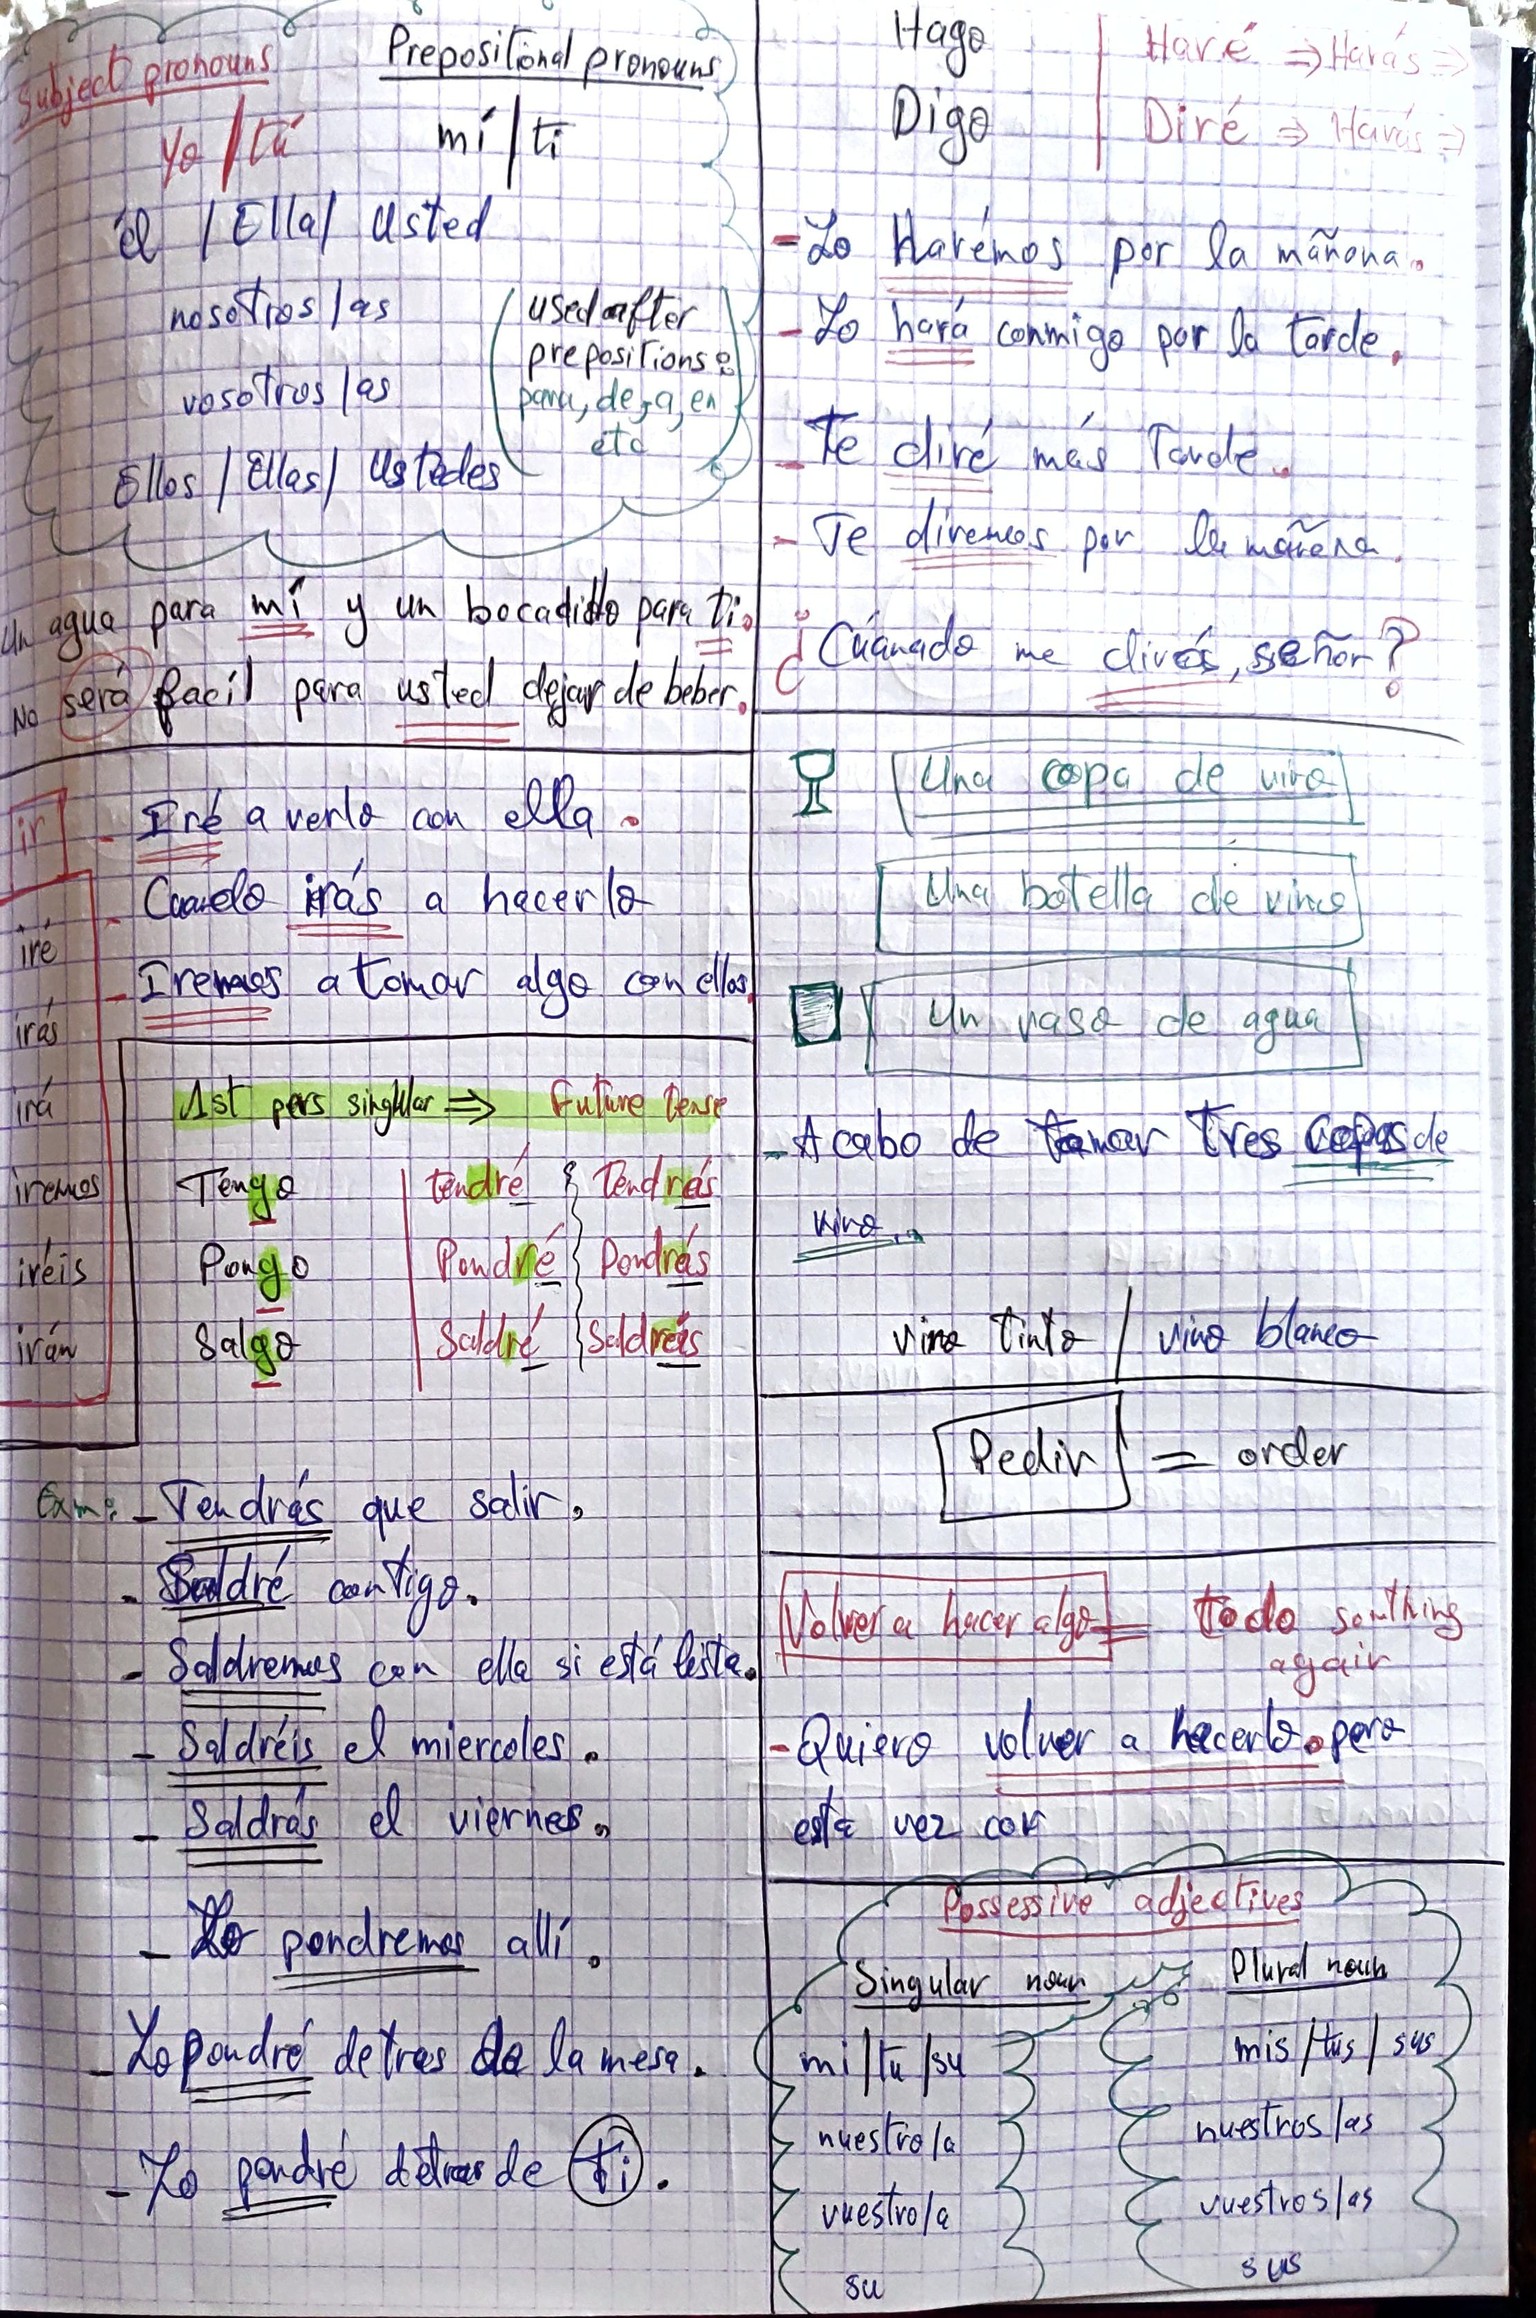 Subject pronouns Prepositional pronouns
yo / tú mí / ti
él / Ella / Usted
nosotros / as
vosotros / as
Ellos / Ellas / Ustedes
used after
prepositions:
para, de, a, en
etc
Un agua para mí y un bocadillo para ti.
No será facil para usted dejar de beber.
ir
iré
irás
irá
iremos
iréis
irán
- Iré a verlo con ella.
- Cuando irás a hacerlo
- Iremos a tomar algo con ellos.
1st pers singular => Future tense
Tengo tendré Tendrás
Pongo Pondré Pondrás
Salgo Saldré Saldrás
Exm: - Tendrás que salir.
- Saldré contigo.
- Saldremos con ella si está lista.
- Saldréis el miercoles.
- Saldrás el viernes.
- Lo pondremos allí.
- Lo pondré detras de la mesa.
- Lo pondré detras de ti.
Hago Haré => Harás =>
Digo Diré => Harás =>
- Lo Harémos por la mañona.
- Lo hará conmigo por la tarde.
- Te diré más Tarde.
- Te diremos por la mañena.
¿Cuánado me dirás, señor?
Una copa de vino
Una botella de vino
Un vaso de agua
- Acabo de tomar tres copas de
vino.
vino tinto / vino blanco
Pedir = order
Volver a hacer algo = to do somthing
again
- Quiero volver a hacerlo. pero
esta vez con
Possessive adjectives
Singular noun Plural noun
mi / tu / su mis / tus / sus
nuestro/a nuestros/as
vuestro/a vuestros/as
su sus